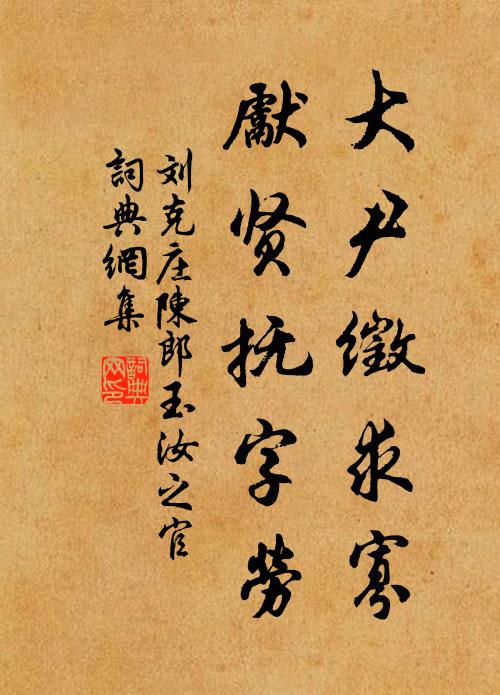 大尹徵求寡
獻贤抚字劳
刘克庄陳郎玉汝之官
詞典網集
詞典
网印